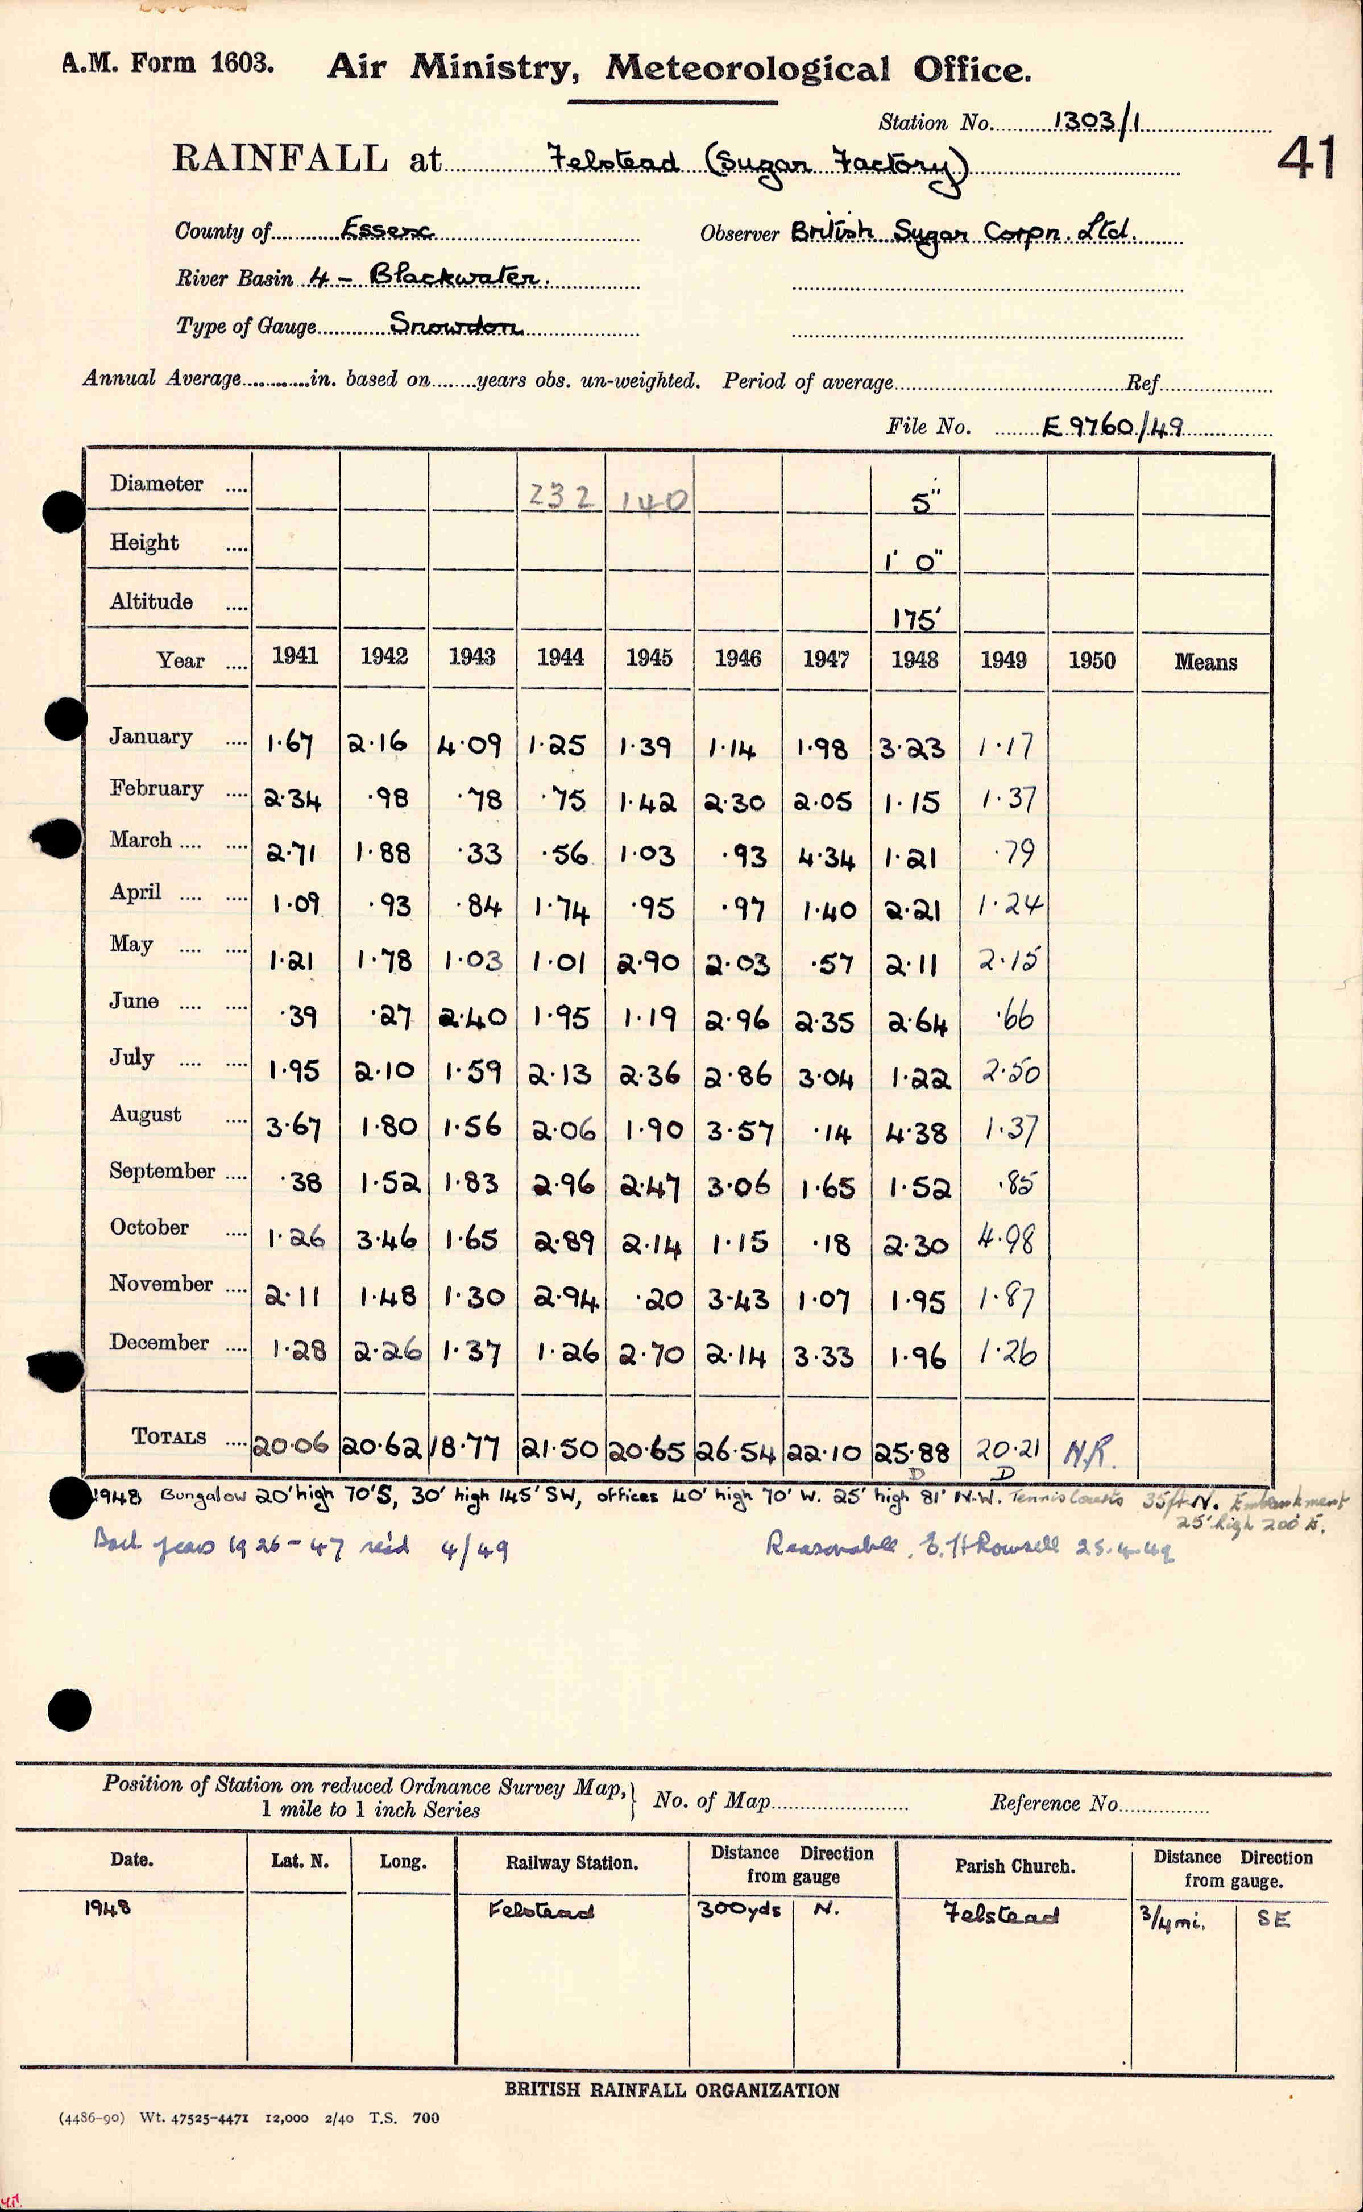 A.M. Form 1603. Air Ministry, Meteorological Office.
Station No. 1303/1
41
RAINFALL at Felstead (Sugar Factory)
County of Essex Observer British Sugar Corpn. Ltd.
River Basin 4 - Blackwater.
Type of Gauge Snowdon
Annual Average in. based on years obs. un-weighted. Period of average Ref
File No. E 9760/49
Diameter .... 232 140 5"
Height .... 1' 0"
Altitude .... 175'
Year .... 1941 1942 1943 1944 1945 1946 1947 1948 1949 1950 Means
January .... 1·67 2·16 4·09 1·25 1·39 1·14 1·98 3·23 1·17
February .... 2·34 ·98 ·78 ·75 1·42 2·30 2·05 1·15 1·37
March .... .... 2·71 1·88 ·33 ·56 1·03 ·93 4·34 1·21 ·79
April .... .... 1·09 ·93 ·84 1·74 ·95 ·97 1·40 2·21 1·24
May .... .... 1·21 1·78 1·03 1·01 2·90 2·03 ·57 2·11 2·15
June .... .... ·39 ·27 2·40 1·95 1·19 2·96 2·35 2·64 ·66
July .... .... 1·95 2·10 1·59 2·13 2·36 2·86 3·04 1·22 2·50
August .... 3·67 1·80 1·56 2·06 1·90 3·57 ·14 4·38 1·37
September .... ·38 1·52 1·83 2·96 2·47 3·06 1·65 1·52 ·85
October .... 1·26 3·46 1·65 2·89 2·14 1·15 ·18 2·30 4·98
November .... 2·11 1·48 1·30 2·94 ·20 3·43 1·07 1·95 1·87
December .... 1·28 2·26 1·37 1·26 2·70 2·14 3·33 1·96 1·26
TOTALS .... 20·06 20·62 18·77 21·50 20·65 26·54 22·10 25·88 20·21 N.R.
D D
1948 Bungalow 20' high 70' S, 30' high 145' SW, offices 40' high 70' W. 25' high 81' N.W. Tennis Courts 35ft N. Embankment
25' high 200' E.
Back years 1926-47 rec'd 4/49 Reasonable. E. H Rowsell 25.4.49
Position of Station on reduced Ordnance Survey Map, No. of Map Reference No.
1 mile to 1 inch Series
Date. Lat. N. Long. Railway Station. Distance from gauge Direction Parish Church. Distance from gauge. Direction
1948 Felstead 300yds N. Felstead 3/4 mi. SE
BRITISH RAINFALL ORGANIZATION
(4486-90) Wt. 47525-4471 12,000 2/40 T.S. 700